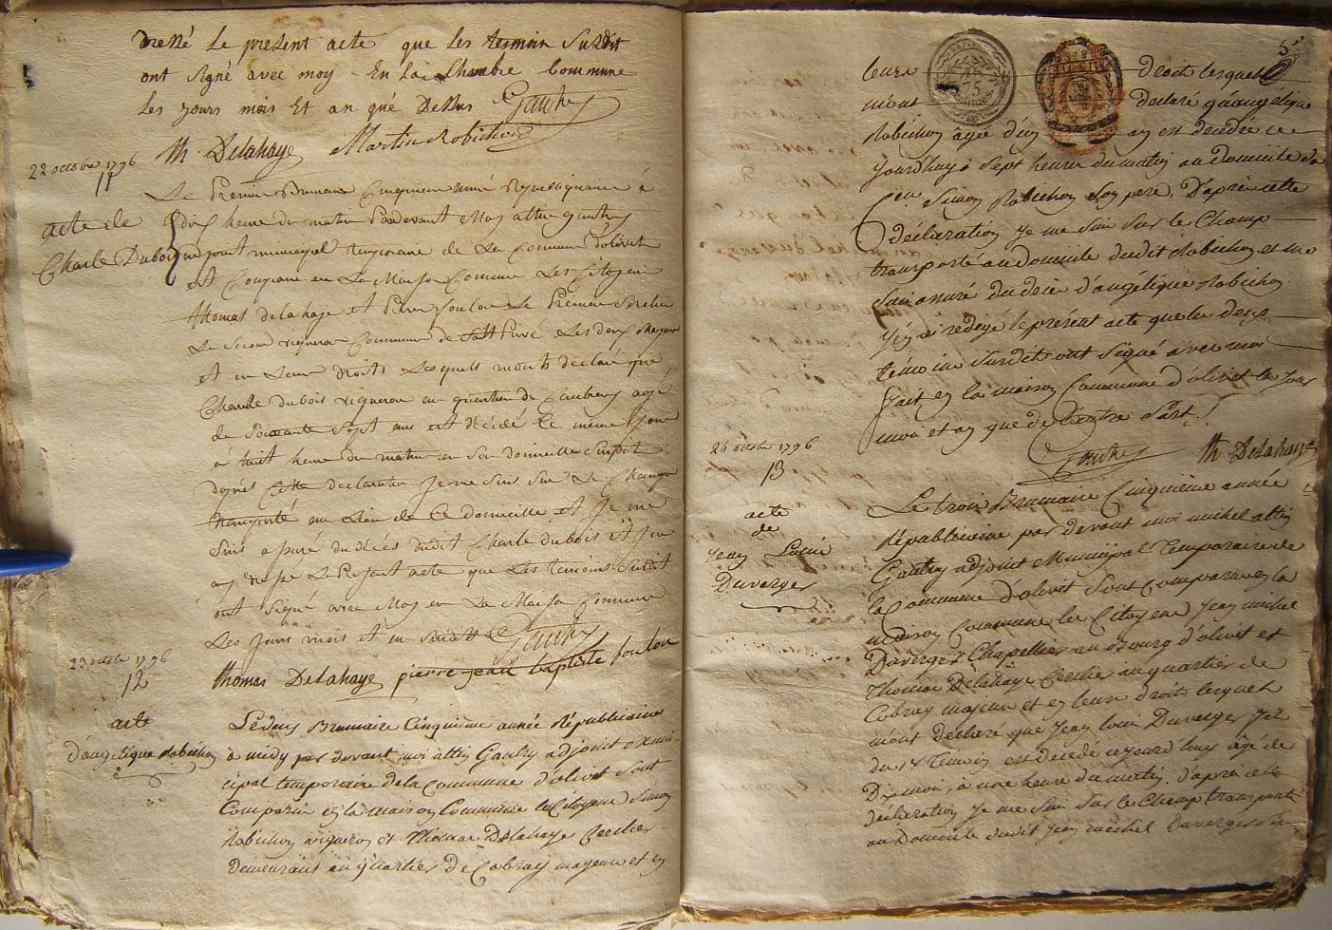 dressé le présent acte que les temoin Susdit
ont signé avec moy En la Chambre Commune
les jours mois Et an que Dessus Gautry
Th. Delahaye Martin Robichon
22 octobre 1796
11
acte de
Charle Dubois
Le Premier Brumaire Cinquieme anné Republiquaine à
dix heure du matin Pardevant Moy attin gautry
adjoint municipal temporaire de La Commune d'olivet
est Comparu en La Maison Commune Les Citoyens
thomas delahaye et Pierre foulon Le Premier Cerclier
Le Second vigneron Commune de Les deux Majeur
et en Leurs droits Lesquels m'ont déclaré que
Charle dubois vigneron au quartier de Cambray agé
de Soixante Sept ans est décédé le même jour
à huit heure du matin en Son domicille
daprès Cette declaration Je me Suis Sur Le Champs
transporté au Lieu de Ce domicille et Je me
Suis assuré du décès dudit Charle dubois et J'en
ay dressé Le Présent acte que Les temoins Susdit
ont Signé avec Moy en La Maison Commune
Les Jours mois et an Gautry
thomas Delahaye pierre jean baptiste foulon
23 octobre 1796
12
acte
d'angelique Robichon
Le deux Brumaire Cinquième année Républicaine
à midy par devant moi attin Gautry adjoint muni-
cipal temporaire de la Commune d'olivet sont
Comparu en la maison Commune les Citoyens Simon
Robichon vigneron et Thomas Delahaye Cerclier
demeurant au quartier de Cobray majeurs et en
5
leurs droits lesquels
m'ont déclaré qu'angelique
Robichon âgée d'un an est décédée ce
jourdhuy à sept heure du matin au Domicile de
Simon Robichon son pere, D'après cette
déclaration je me suis sur le Champ
transporté au Domicile dudit Robichon et me
suis assuré du décè d'angélique Robichon
j'en ai rédigé le présent acte que les deux
témoins susdits ont signé avec moi
fait en la maison Commune d'olivet les jour
mois et an que de l'autre part.
Gautry Th Delahaye
24 octobre 1796
13
acte
de
jean Louis
Duverger
Le trois Brumaire Cinquième année
Républicaine par devant moi michel attin
Gautry adjoint Municipal Temporaire de
la Commune d'olivet sont Comparu en la
maison Commune les Citoyens jean michel
Duverger Chapellier au Bourg d'olivet et
Thomas Delahaye Cerclier au quartier de
Cobray majeurs et en leurs droits lesquels
m'ont déclaré que jean louis Duverger
du témoin est décédé cejourd'huy agé de
Dix mois, à une heure du matin, d'après cette
déclaration je me suis sur le Champ transporté
au Domicile dudit jean michel Duverger